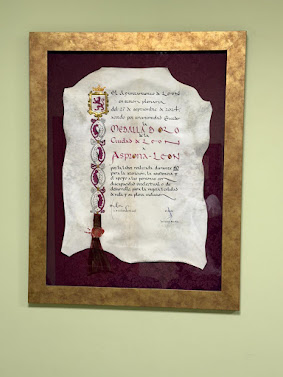 El Ayuntamiento de León
en sesión plenaria
del 27 de septiembre de
acordó por unanimidad
la
MEDALLA DE ORO
de la
Ciudad de León
a
ASPRONA-LEÓN
por la labor realizada durante 50
para la atención, la asistencia y
el apoyo a las personas con
discapacidad intelectual o de
desarrollo, para la